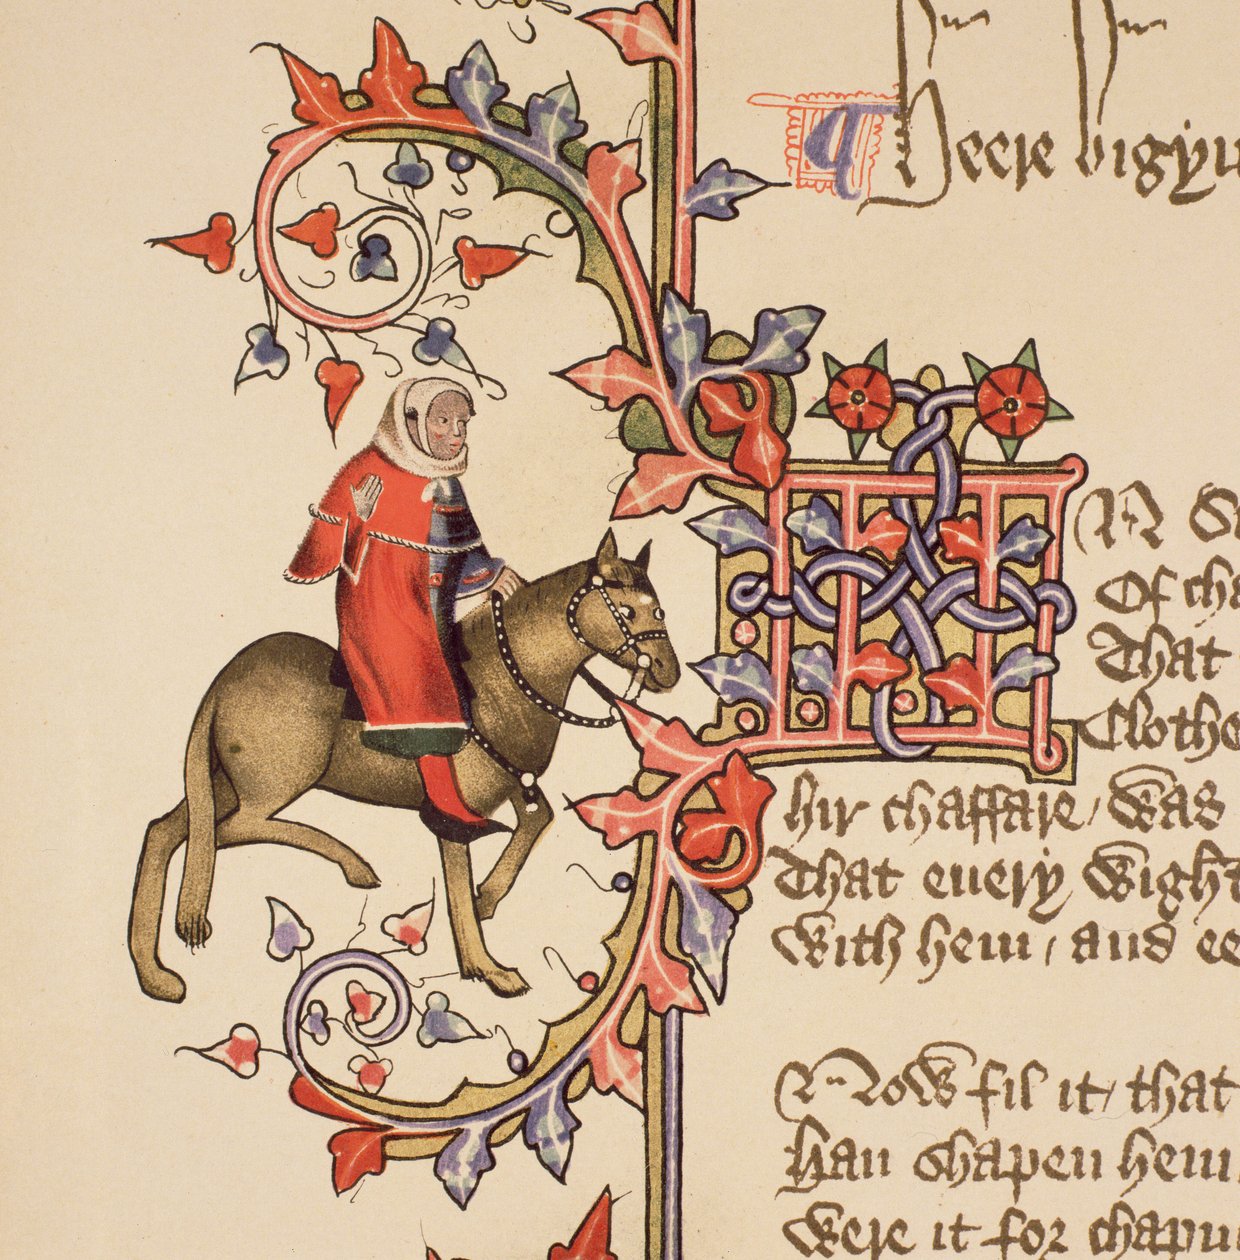 ¶ Heere bigyn
IN S
Of cha
That
Clothe
hir chaffare / was
That euery wight
With hem / and ee
Now fil it / that
Han shapen hem
Were it for chapm